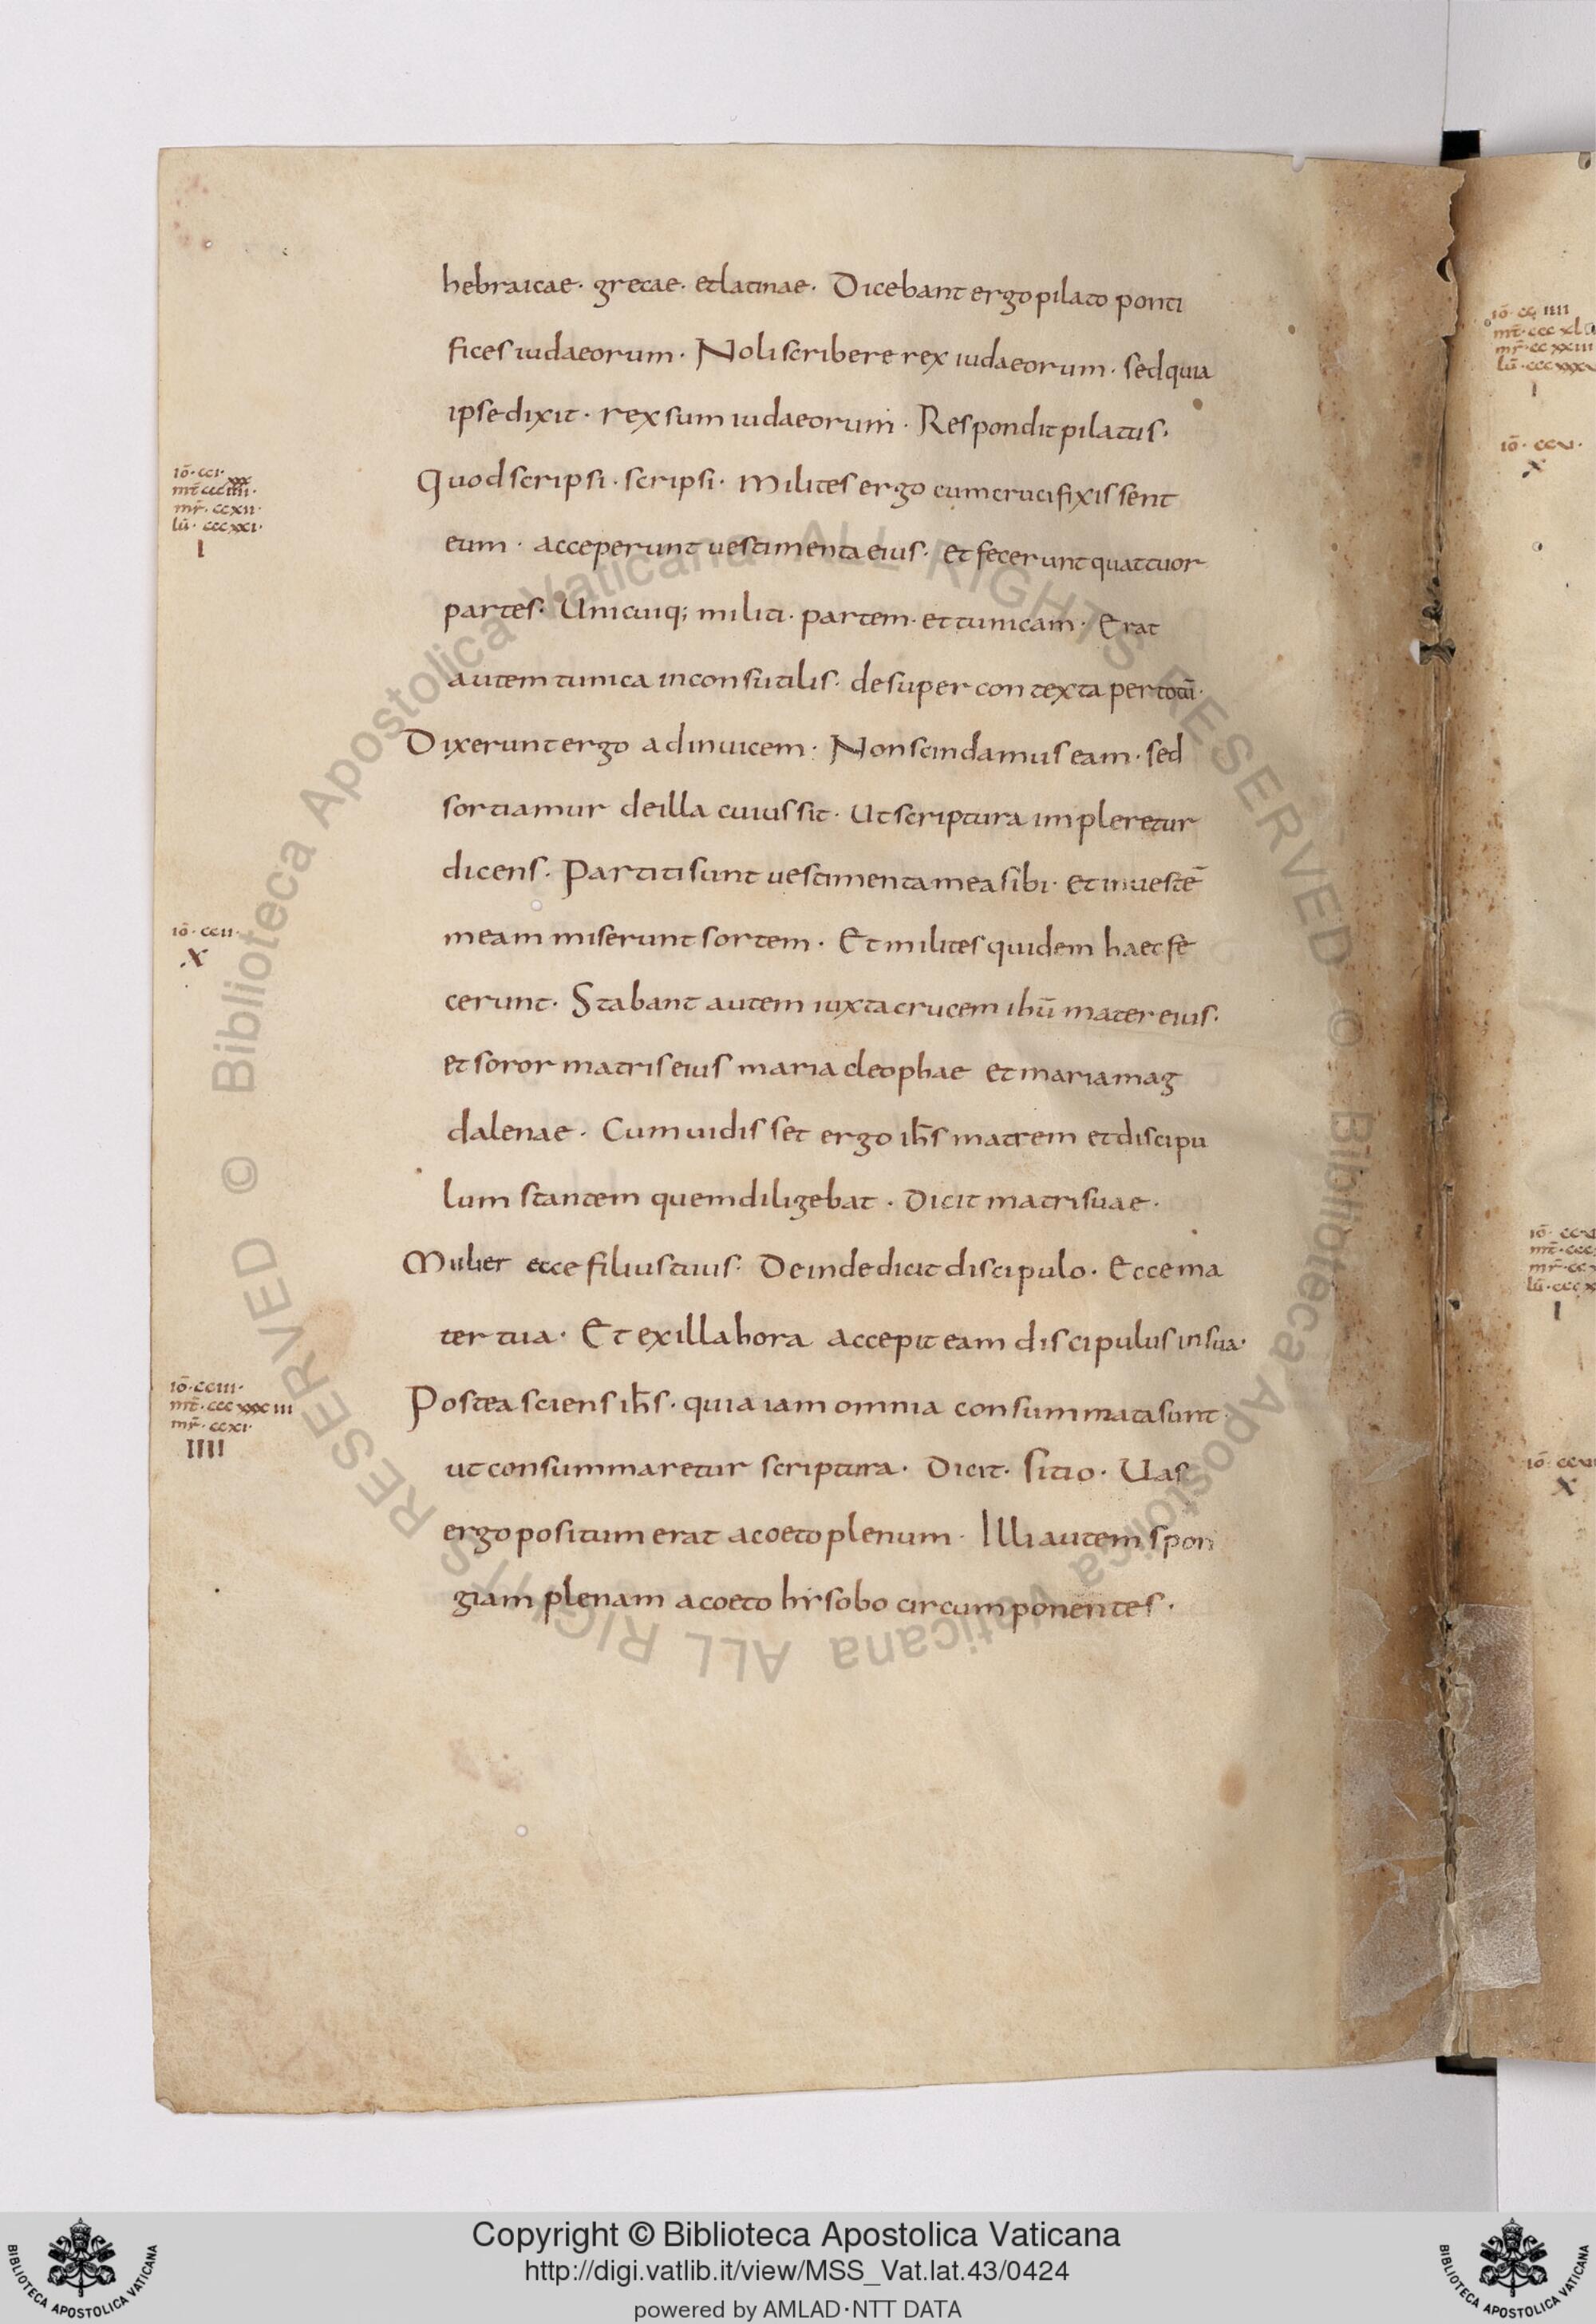 hebraicae · grecae · et latinae · Dicebant ergo pilato ponti
fices iudaeorum · Noli scribere rex iudaeorum · sed quia
ipse dixit · rex sum iudaeorum · Respondit pilatus ·
io · cci ·
mt cccxxxiiii ·
mr · ccxii ·
lu · cccxxi ·
I
Quod scripsi · scripsi · Milites ergo cum crucifixissent
eum · acceperunt uestimenta eius · et fecerunt quattuor
partes · Unicuiq; militi · partem · et tunicam · Erat
autem tunica inconsutilis · desuper contexta per totū ·
Dixerunt ergo adinuicem · Non scindamus eam · sed
sortiamur de illa cuius sit · Ut scriptura impleretur
dicens · Partiti sunt uestimenta mea sibi · et in uestē
io · ccii ·
X
meam miserunt sortem · Et milites quidem haec fe
cerunt · Stabant autem iuxta crucem ihū mater eius ·
et soror matris eius maria cleophae et maria mag
dalenae · Cum uidisset ergo ihs̄ matrem et discipu
lum stantem quem diligebat · Dicit matri suae ·
Mulier ecce filius tuus · Deinde dicit discipulo · Ecce ma
ter tua · Et ex illa hora accepit eam discipulus in sua ·
io · cciii ·
mt · cccxxxiii
mr · ccxi ·
IIII
Postea sciens ihs̄ · quia iam omnia consummata sunt ·
ut consummaretur scriptura · Dicit · sitio · Uas
ergo positum erat acoeto plenum · Illi autem spon
giam plenam acoeto hysobo circumponentes ·
© Biblioteca Apostolica Vaticana ALL RIGHTS RESERVED © Biblioteca Apostolica Vaticana ALL RIGHTS RESERVED
Copyright © Biblioteca Apostolica Vaticana
http://digi.vatlib.it/view/MSS_Vat.lat.43/0424
powered by AMLAD·NTT DATA
BIBLIOTECA APOSTOLICA VATICANA
BIBLIOTECA APOSTOLICA VATICANA